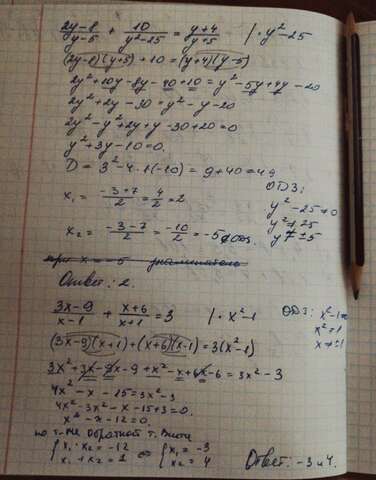 (2y-8)/(y-5) + 10/(y²-25) = (y+4)/(y+5) | · y²-25
(2y-8)(y+5) + 10 = (y+4)(y-5)
2y² + 10y - 8y - 40 + 10 = y² - 5y + 4y - 20
2y² + 2y - 30 = y² - y - 20
2y² - y² + 2y + y - 30 + 20 = 0
y² + 3y - 10 = 0.
D = 3² - 4·1·(-10) = 9 + 40 = 49
x₁ = (-3+7)/2 = 4/2 = 2
x₂ = (-3-7)/2 = -10/2 = -5 ∉ ОДЗ.
ОДЗ:
y² - 25 ≠ 0
y² ≠ 25
y ≠ ±5
при x = -5 знаменатель
Ответ: 2.
(3x-9)/(x-1) + (x+6)/(x+1) = 3 | · x²-1
ОДЗ: x²-1≠
x² ≠ 1
x ≠ ±1
(3x-9)(x+1) + (x+6)(x-1) = 3(x²-1)
3x² + 3x - 9x - 9 + x² - x + 6x - 6 = 3x² - 3
4x² - x - 15 = 3x² - 3
4x² - 3x² - x - 15 + 3 = 0.
x² - x - 12 = 0.
по т-ме обратной т. Виета
{ x₁ · x₂ = -12 ⇔ { x₁ = -3
x₁ + x₂ = 1 x₂ = 4
Ответ: -3 и 4.